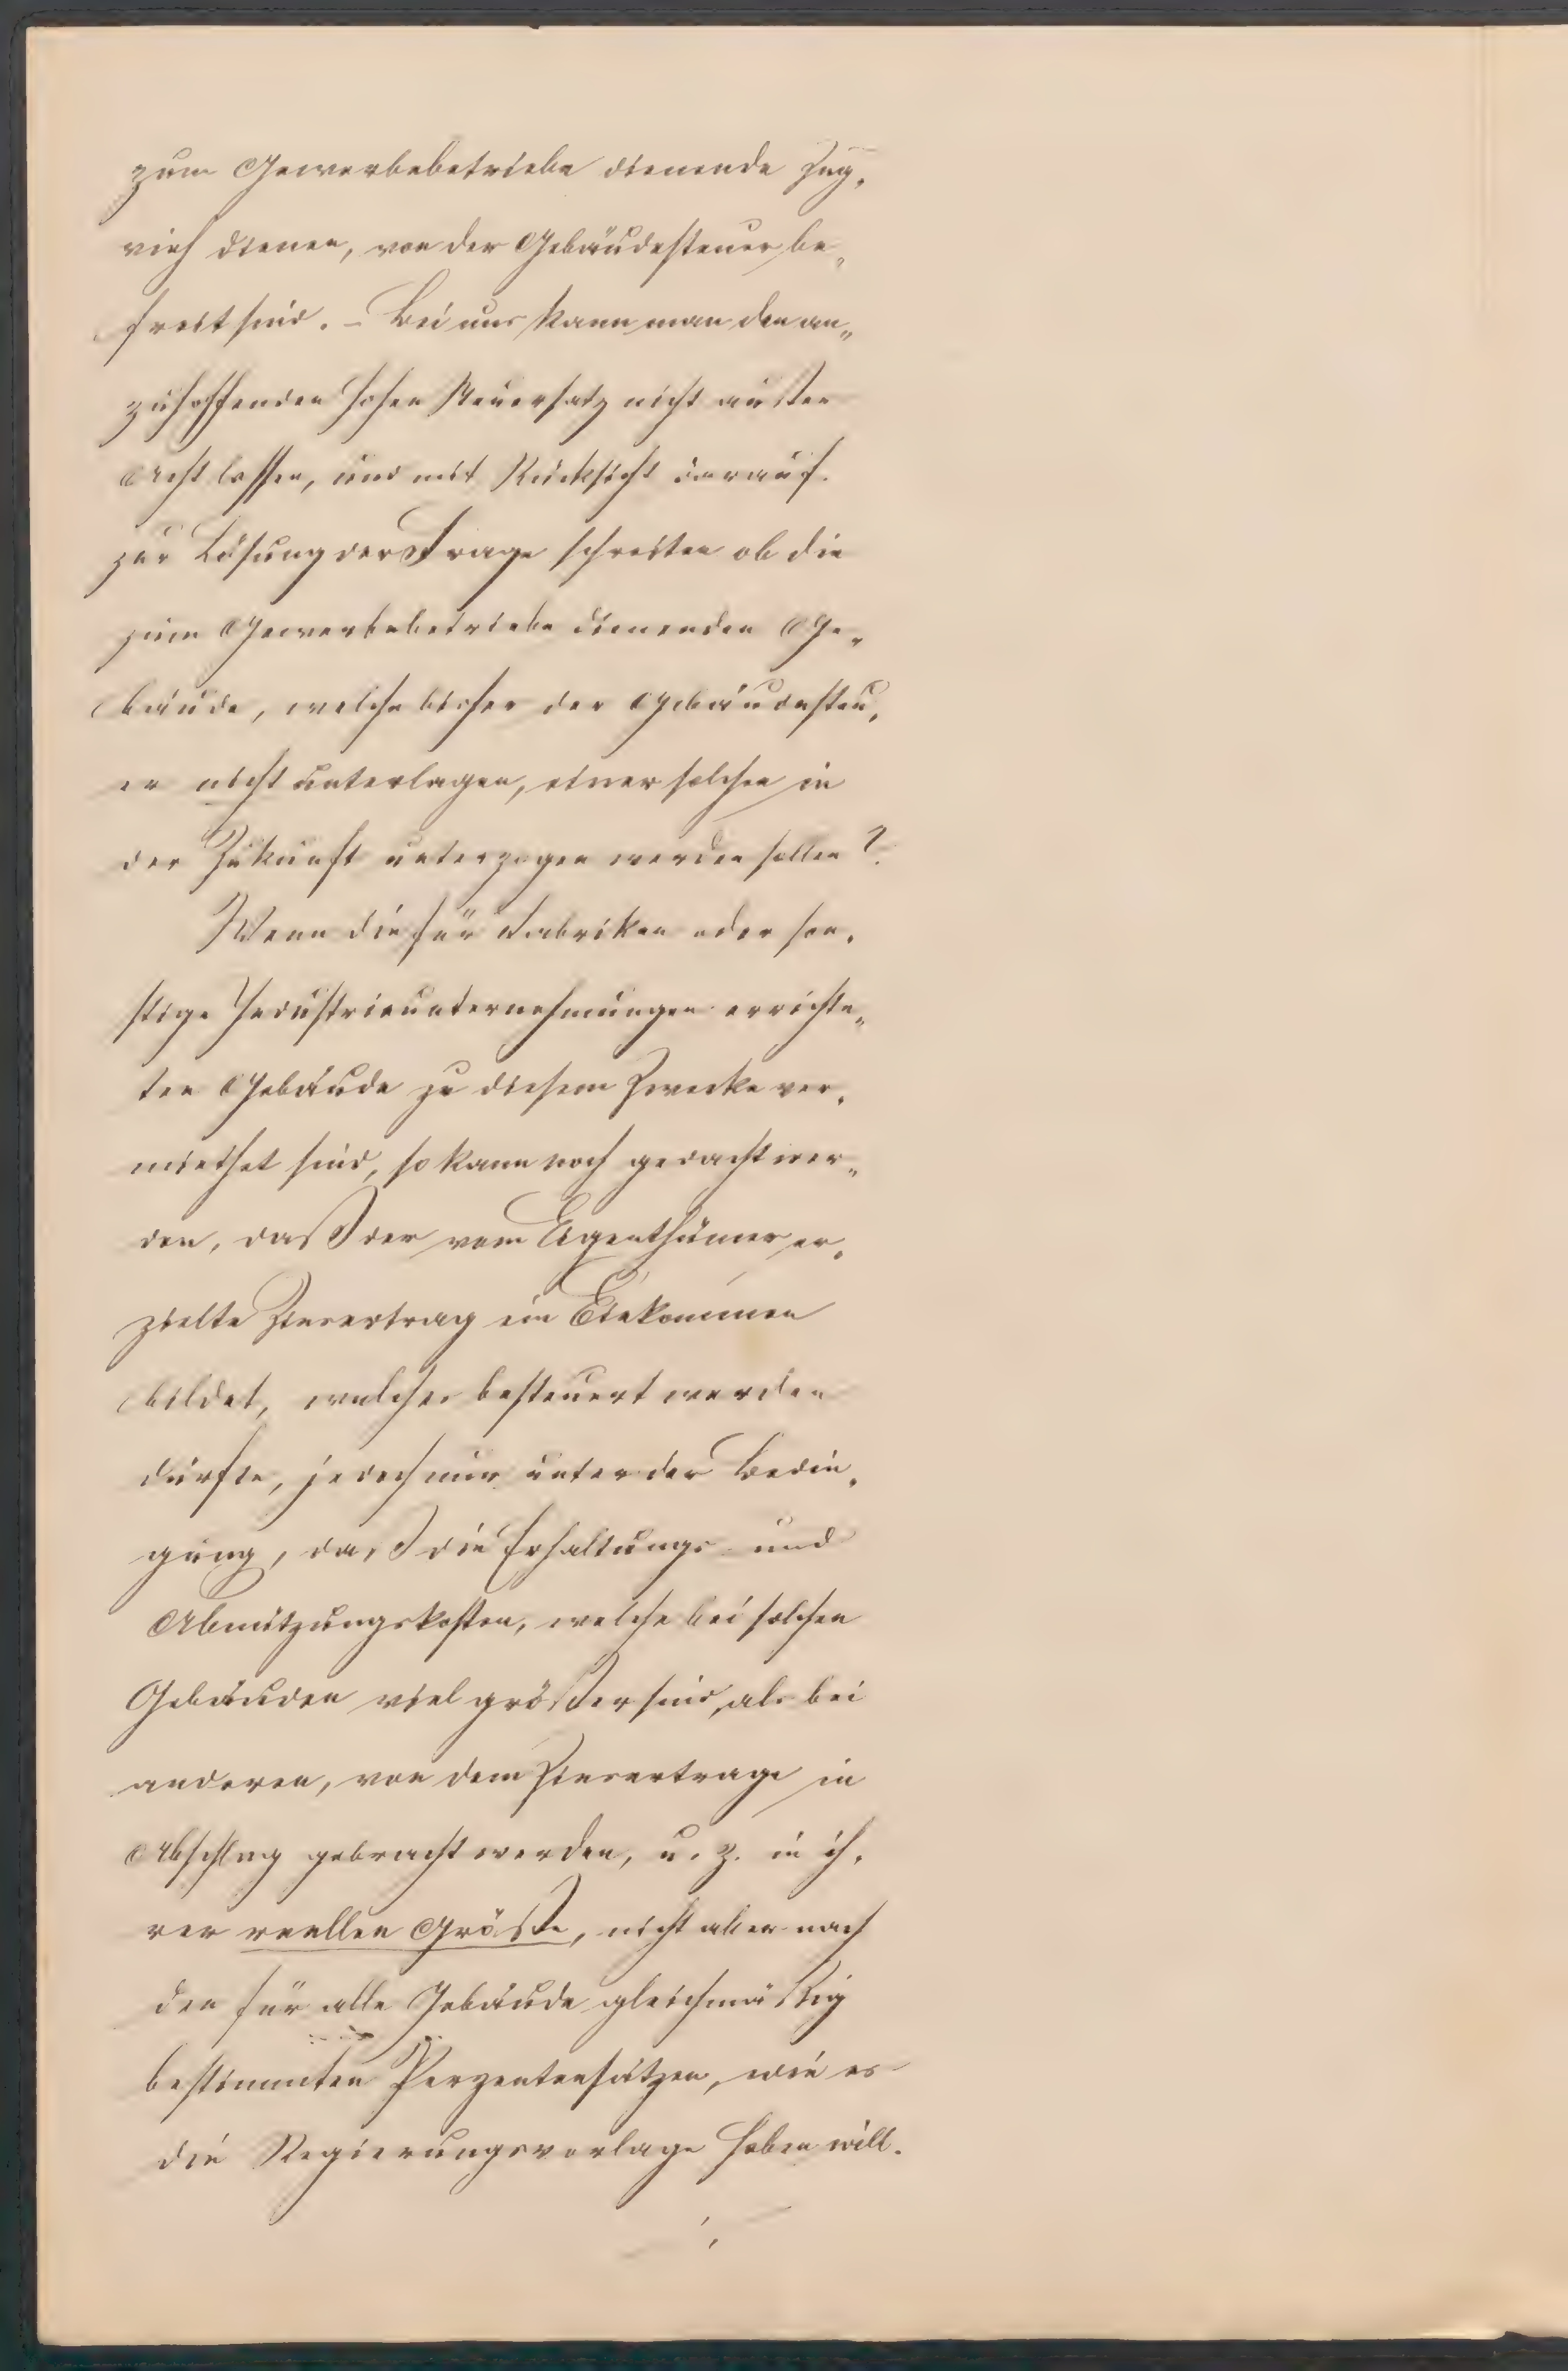 zum Gewerbebetriebe dienende Zug,
vieh dienen, von der Gebäudesteuer be„
freit sind. – Bei uns kann man den an„
zuhoffenden hohen Steuersatz nicht außer
Acht lassen, und mit Rücksicht darauf
zur Lösung der Frage schreiten ob die
zum Gewerbebetriebe dienenden Ge„
bäude, welche bisher der Gebäudesteu,
er nicht unterlagen, einer solchen in
der Zukunft unterzogen werden sollen?
Wenn die für Fabriken oder son,
stige Industrieunternehmungen errichte„
ten Gebäude zu diesem Zwecke ver,
miethet sind, so kann noch gedacht wer„
den, daß der vom Eigenthümer er,
zielte Zinsertrag ein Einkommen
bildet, welches besteuert werden
dürfte, jedoch nur unter der Bedin,
gung, daß die Erhaltungs- und
Abnützungskosten, welche bei solchen
Gebäuden viel größer sind, als bei
anderen, von dem Zinsertrage in
Abschlag gebracht werden, u. z. in ih,
rer reellen Größe, nicht aber nach
den für alle Gebäude gleichmäßig
bestimmten Perzentensätzen, wie es
die Regierungsvorlage haben will.